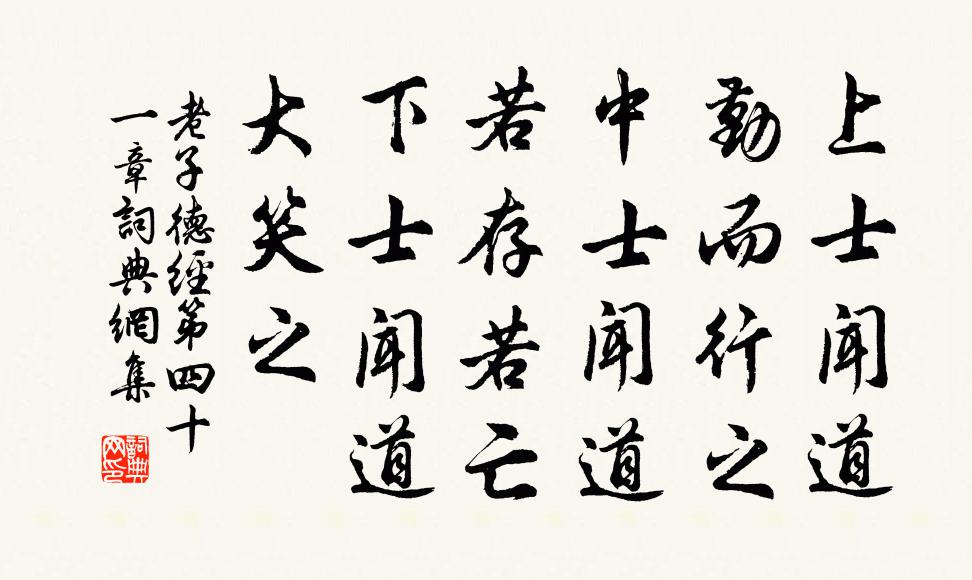 上士闻道
勤而行之
中士闻道
若存若亡
下士闻道
大笑之
老子德經第四十
一章詞典網集
詞典网印